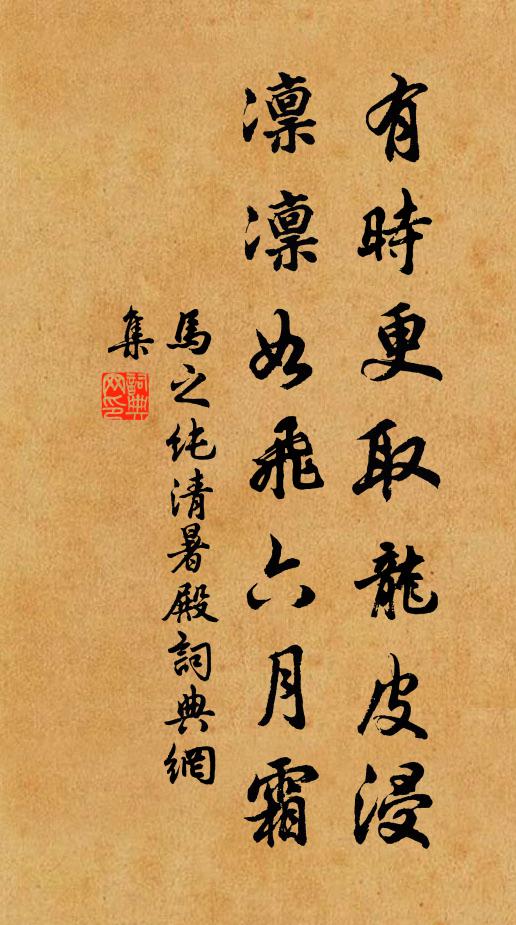 有時更取龍皮浸
凜凜如飛六月霜
馬之純清暑殿詞典網
集
詞典網印